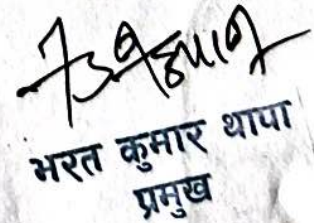 भरत कुमार थापा
प्रमुख